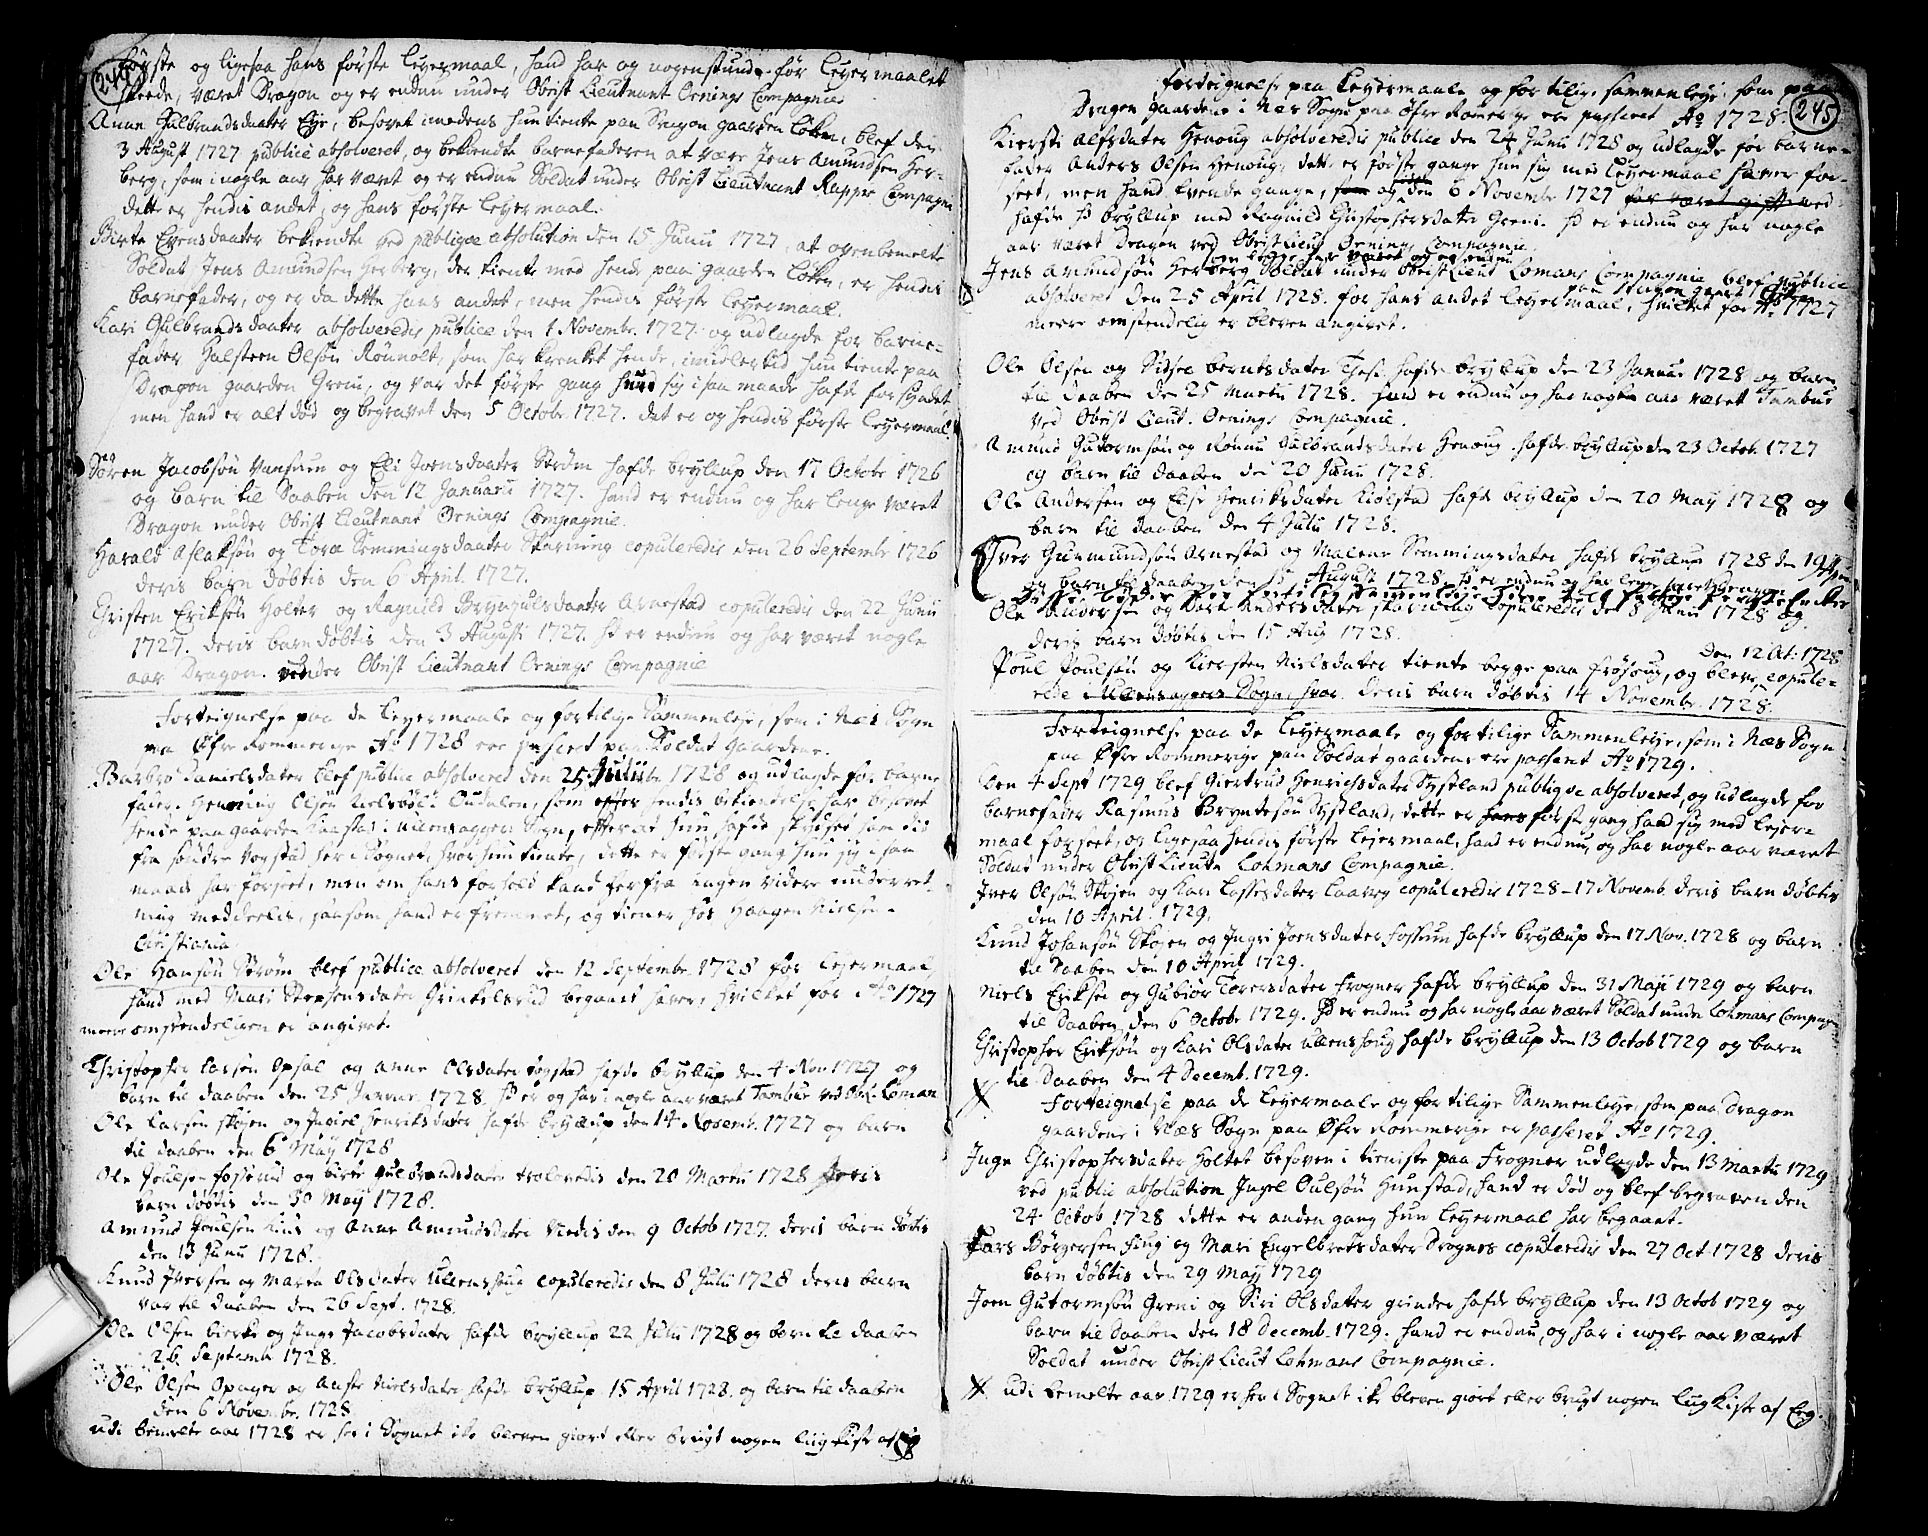 244
første og ligesaa hans første Leyermaal, hand har og nogenstunde før Leyermaalet
skeede, været Dragon og er endnu under Obrist Lieutnant Ornings Compagnie
Anne Gulbrandsdaater Eye, besovet imedens hun tiente paa Dragon gaarden Løken, blef den
3 August 1727 publicè absolveret, og bekiendte barnefaderen at være Jens Amundsen Her-
berg, som i nogle aar har været og er endnu Soldat under Obrist Lieutnant Rappe Compagni
dette er hendis andet, og hans første Leyermaal.
Birte Evensdaater bekiendte ved publiqve absolution den 15 Junii 1727, at ovenbemelte
Soldat Jens Amundsen Herberg, der tiente med hende paa gaarden Løken, er hendis
barnefader, og er da dette hans andet, men hendis første Leyermaal.
Kari Gulbrandsdaater absolveredis publicè den 1 Novembr. 1727. og udlagde for barne-
fader Halsteen Olsøn Rønnolt, som har krenket hende, imidlertid hun tiente paa
Dragon gaarden Greni, og var det første gang hand sig i saa maade hafde forsyndet
men hand er alt død og begravet den 5 Octobr 1727. det er og hendis første Leyermaal.
Søren Jacobsøn Vansuen og Eli Joensdaater Strøm hafde bryllup den 17 Octobr 1726
og barn til Daaben den 12 Januarii 1727. hand er endnu og har lenge været
Dragon under Obrist Lieutnant Ornings Compagnie.
Harald Aslaksøn og Tora Semmingsdaater Skarning copuleredis den 26 Septembr 1726
deris barn døbtis den 6 April 1727.
Christen Eriksøn Holter og Ragnild Brynjulsdaater Arnestad copuleredis den 22 Junii
1727. deris barn døbtis den 3 Augusti 1727. hd er endnu og har været nogle
aar Dragon under Obrist Lieutnant Ornings Compagnie
Forteignelse paa de Leyermaale og fortilige Sammenleye, som i Næs Sogn
paa Øfre Rommerige Aº 1728 ere passeret paa Soldat gaardene.
Barbro Danielsdater blef publicè absolveret den 25 Julii 1728 og udlagde for barne
fader Henning Olsøn Nielsbøl i Oudalen, som efter hendis bekiendelse har besovet
hende paa gaarden Kaastad i Ullensaggers Sogn, efter at hun hafde skydset ham did
fra søndre Vorstad her i Sognet, hvor hun tiente, dette er første gang hun sig i saa
maade har forseet, men om hans forhold kand herfra ingen videre underret-
ning meddeelis, saasom hand er fremmet, og tiener hos Haagen Nielsen
Christiania.
Ole Hansøn Strøm blef publicè absolveret den 12 Septembr 1728 for Leyermaal
hand med Mari Stephensdater Grinkelsrud begaaet haver, hvilket for Aº 1727
meere omstendeligen er angivet.
Christopher Larsen Opsal og Anne Olsdater Togstad hafde bryllup den 4 Nov 1727 og
barn til daaben den 25 Januar. 1728. hd er og har i nogle aar været Tambur ved Obr. Loman
Ole Larsen Skøien og Ingiel Henriksdater hafde bryllup den 14 Novemb. 1727 og barn
til daaben den 6 May 1728
Ole Poulsen Fosserud og Birte Gulbrandsdater troloredis den 20 Martii 1728 deris
barn døbtis den 30 May 1728.
Amund Poulsen Kius og Anne Amundsdater Viedis den 9 Octob 1727. deris barn døbtis
den 13 Junii 1728.
Knud Iversen og Maren Olsdater Ullenshoug copuleredis den 8 Julii 1728 deris barn
var til daaben den 26 Sept. 1728.
Ole Olsen Bierke og Inge Jacobsdater hafde bryllup 22 Julii 1728 og barn til daaben
26. Septemb 1728.
Ole Olsen Opager og Anne Nielsdater hafde bryllup 15 April 1728. og barn til daaben
den 6 Novembr. 1728
udi bemelte aar 1728 er her i Sognet ik bleven giort eller brugt nogen liig kiste af Eg
245
Forteignelse paa Leyermaale og fortilig sammenleye, som paa
Dragon gaardene i Næs Sogn paa Øfre Romerige ere passeret Aº 1728
Kiersti Alfsdater Henoug absolveredis publicè den 24 Junii 1728 og udlagde for barne-
fader Anders Olsen Henoug, dett er første gange hun sig med Leyermaal haver for-
seet, men hand tvende gange, og den 6 Novembr 1727 har været gift med
hafde hd bryllup med Ragnild Christophersdater Greni. hd er endnu og har nogle
aar været Dragon ved Obrist Lieut Ornings Compagnie.
som begge har været og er endnu
Jens Amundsøn Herberg Soldat under Obrist Lieut Lomans Compagnie blef publicè
paa Dragon gaard Løken
absolveret den 25 April 1728. for hans andet Leyermaal, hvilket for Aº 1727
meere omstendelig er bleven angivet.
Ole Olsen og Sidsel Berntsdater Thesi hafde bryllup den 23 Januar 1728 og barn
til daaben den 25 Martii 1728. hand er endnu og har nogle aar været Tambur
ved Obrist Lieut. Ornings Compagnie.
Amund Gutormsøn og Rønnu Gulbrandsdater Henoug hafde bryllup den 23 Octob. 1727
og barn til daaben den 20 Junii 1728.
Ole Andersen og Else Henriksdater Kiølstad hafde bryllup den 20 May 1728 og
barn til daaben den 4 Julii 1728.
Iver Gunmundsøn Arnestad og Malene Semmingsdater hafde bryllup 1728 den 19 Apr.
og barn til daaben den 15 Augusti 1728. hd er endnu og har lenge været Dragon
Ole Andersen og Kari Andersdater Skarning copuleredis den 8 Junii 1728 og
deris barn døbtis den 15 Aug 1728.
den 12 Oct. 1728
Poul Poulsøn og Kiersten Nielsdater tiente begge paa Frøhoug, og bleve copule-
rede i Ullensaggers Sogn, hvor deris barn døbtis 14 Novembr. 1728.
Forteignelse paa de Leyermaale og fortilige Sammenleye, som i Næs Sogn
paa Øfre Rommerige paa Soldat gaardene ere passeret Aº 1729.
Den 4 Sept 1729 blef Giertrud Henrichsdater Systland publiqve absolveret, og udlagde for
barnefader Rasmus Bryntesøn Systland, dette er hans første gang hand sig med Leyer-
maal forseet, og ligesaa hendis første Leyermaal, hand er endnu, og har nogle aar været
Soldat under Obrist Lieutn Lohmans Compagnie.
Iver Olsøn Skøjen og Kari Lassesdater Laareg copuleredis 1728 - 17 Novemb. deris barn døbtis
den 10 April. 1729.
Knud Johansøn Skøjen og Ingri Joensdater Fossum hafde bryllup den 17 Nov. 1728 og barn
til Daaben den 10 April 1729.
Niels Eriksen og Gubiør Toversdater Frogner hafde bryllup den 31 Maji 1729 og barn
til Daaben den 6 Octobr 1729. hd er endnu og har nogle aar været Soldat under Lohmans Compagn
Christopher Eriksøn og Kari Olsdater Ullenshoug hafde bryllup den 13 Octob 1729 og barn
til Daaben den 4 Decemb. 1729.
Forteignelse paa de Leyermaale og fortilige Sammenleye, som paa Dragon
gaardene i Næs Sogn paa Øfre Rommerige er passeret Aº 1729.
Inge Christophersdater Holtet besoven i tieniste paa Frogner udlagde den 13 Martii 1729
ved public absolution Ingel Oulsøn Hunstad, hand er død og blef begraven den
24 Octob 1728 dette er anden gang hun Leyermaal har begaaet.
Lars Børgersen Hiug og Mari Engelbretsdater Drognes copuleredis den 27 Oct 1728 deris
barn døbtis den 29 May 1729
Joen Gutormsøn Greni og Siri Olsdatter Grinder hafde bryllup den 13 Octob 1729 og
barn til Daaben den 18 Decemb. 1729. hand er endnu, og har i nogle aar været
Soldat under Obrist Lieut Lohmans Compagnie.
udi bemelte aar 1729 er her i Sognet ik bleven giort eller brugt nogen Liig Kiste af Eeg.